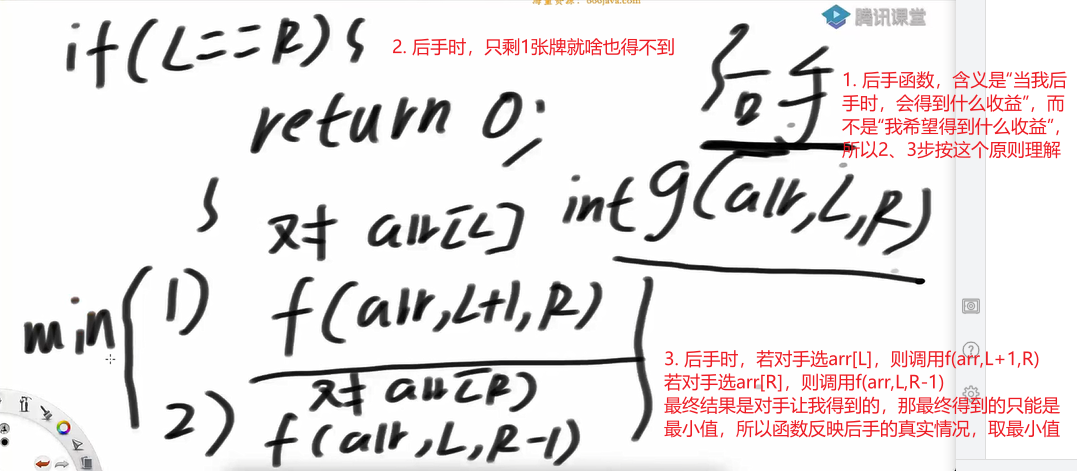 海量资源：666java.com
腾讯课堂
if(L==R){
2. 后手时，只剩1张牌就啥也得不到
后手
1. 后手函数，含义是“当我后
手时，会得到什么收益”，而
不是“我希望得到什么收益”，
所以2、3步按这个原则理解
return 0;
}
int g(arr,L,R)
对手 arr[L]
min
1) f(arr,L+1,R)
对手 arr[R]
2) f(arr,L,R-1)
3. 后手时，若对手选arr[L]，则调用f(arr,L+1,R)
若对手选arr[R]，则调用f(arr,L,R-1)
最终结果是对手让我得到的，那最终得到的只能是
最小值，所以函数反映后手的真实情况，取最小值